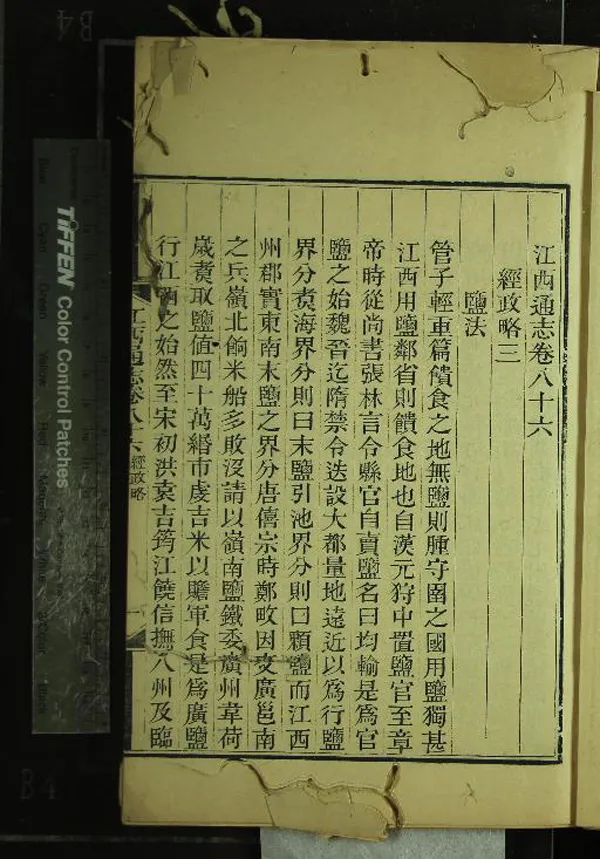 江西通志卷八十六
經政略三
鹽法
管子輕重篇饋食之地無鹽則腫守圉之國用鹽獨甚
江西用鹽鄰省則饋食地也自漢元狩中置鹽官至章
帝時從尚書張林言令縣官自賣鹽名曰均輸是爲官
鹽之始魏晉迄隋禁令迭設大都量地遠近以爲行鹽
界分煑海界分則曰末鹽引池界分則曰顆鹽而江西
州郡實東南末鹽之界分唐僖宗時鄭畋因交廣邕南
之兵嶺北餉米船多敗沒請以嶺南鹽鐵委廣州韋荷
歲煑取鹽值四十萬緡市虔吉米以贍軍食是爲廣鹽
行江西之始然至宋初洪袁吉筠江饒信撫八州及臨
江西通志卷八十六 經政略 一
TIFFEN Color Control Patches
B4
B4